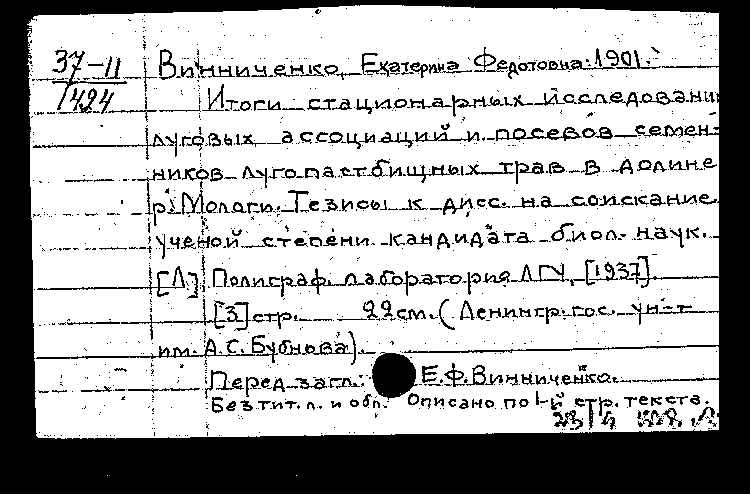 37-11
1424
Винниченко, Екатерина Федотовна. 1901.
Итоги стационарных исследовани
луговых ассоциаций и посевов семен-
ников лугопастбищных трав в долине
р. Мологи. Тезисы к дисс. на соискание
ученой степени кандидата биол. наук.
[Л] Полиграф. лаборатория ЛГУ, [1937].
[3] стр. 22 см. (Ленингр. гос. ун-т
им. А.С. Бубнова).
Перед загл.: Е.Ф. Винниченко.
Без тит. л. и обл. Описано по 1-й стр. текста.